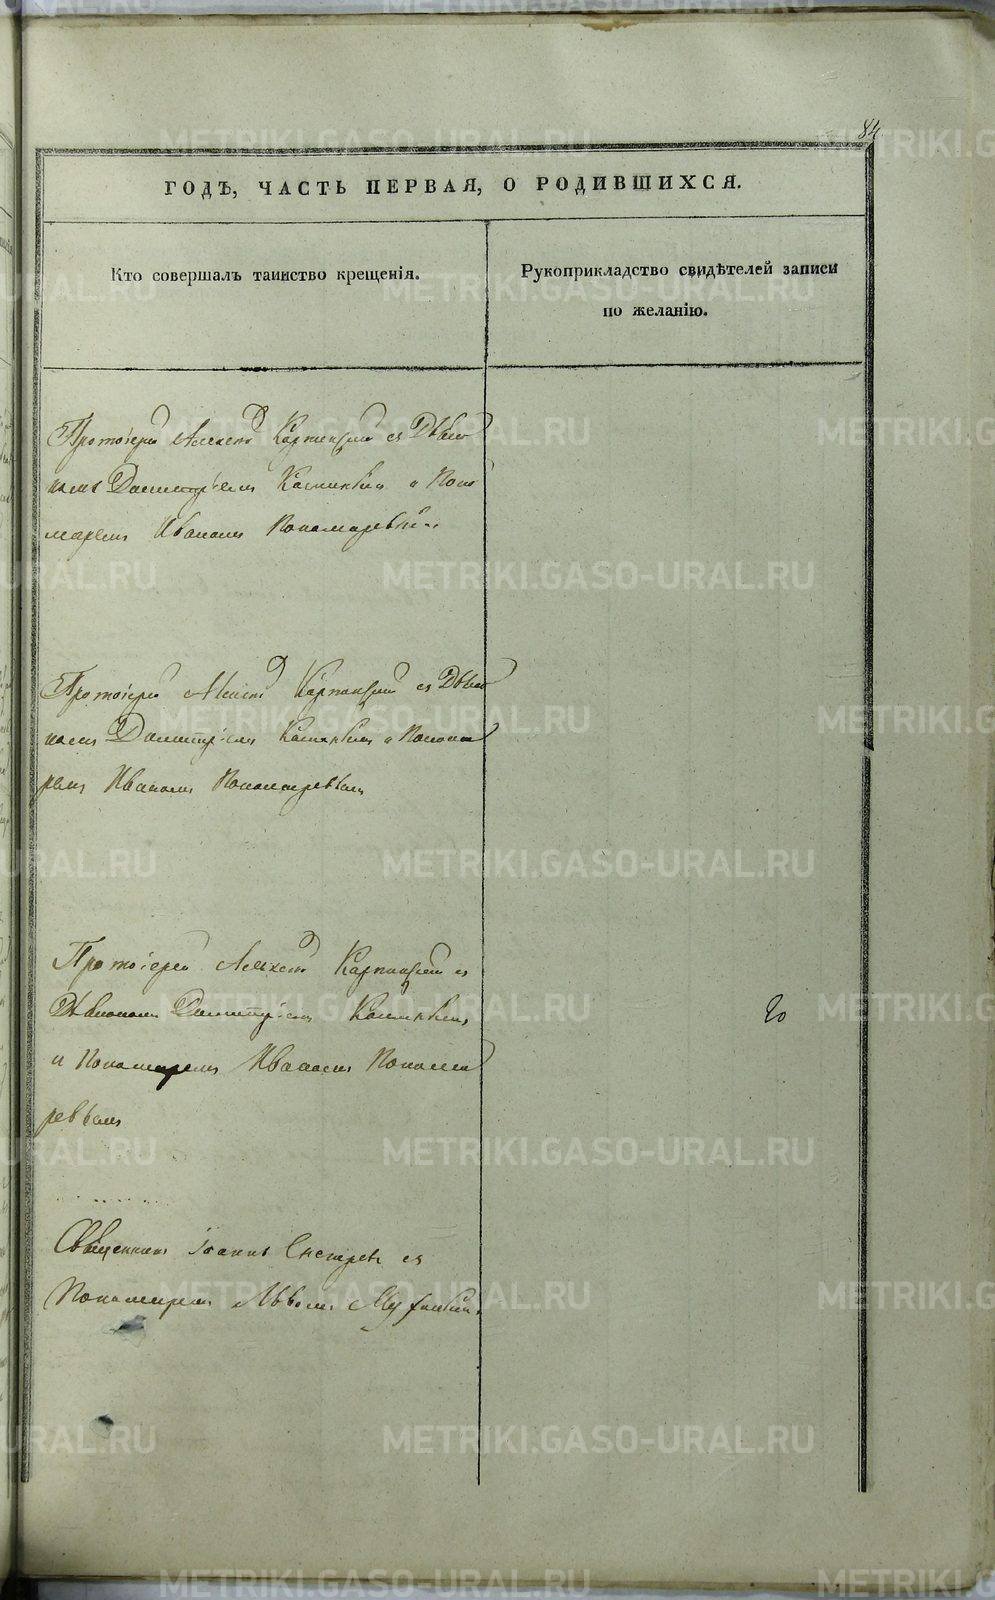 84
ГОДЪ, ЧАСТЬ ПЕРВАЯ, О РОДИВШИХСЯ.
Кто совершалъ таинство крещенія.
Рукоприкладство свидѣтелей записи
по желанію.
Протоіерей Алексѣй Карпинскій съ Діако
номъ Димитріемъ и Поно
маремъ Иваномъ Пономаревымъ
Протоіерей Алексѣй Карпинскій съ Діако
номъ Димитріемъ и Понома
ремъ Иваномъ Пономаревымъ
Протоіерей Алексѣй Карпинскій съ
Діакономъ Димитріемъ
и Пономаремъ Иваномъ Понома
ревымъ
Священникъ Іоаннъ съ
Пономаремъ Львомъ
METRIKI.GASO-URAL.RU